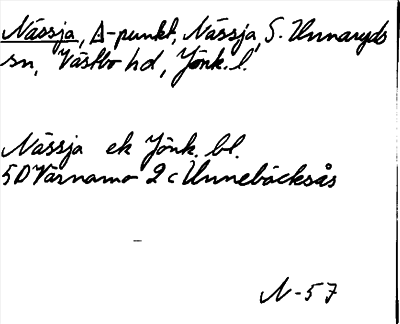 Nässja, Δ-punkt, Nässja, S. Unnaryds
sn, Västbo hd, Jönk. l.
Nässja ek Jönk. bl.
5D Värnamo 2c Unnebäcksås
N-57